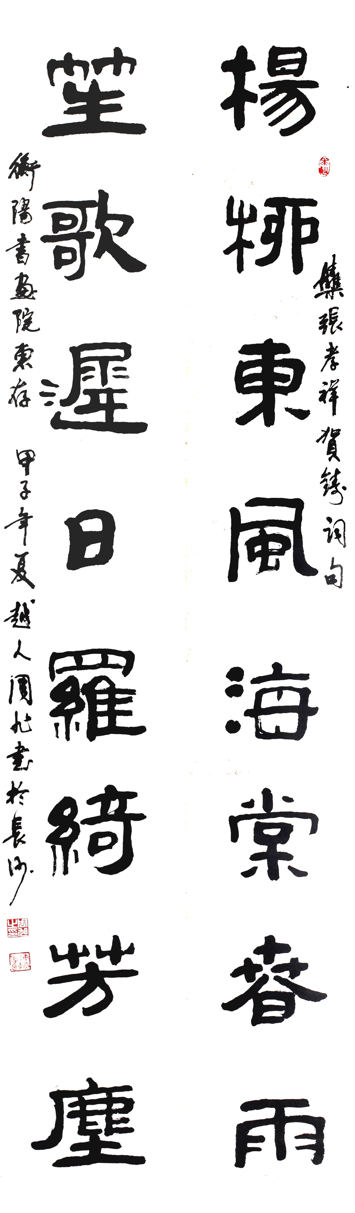 楊柳東風海棠春雨
集張孝祥賀鑄詞句
笙歌遲日羅綺芳塵
衡陽書画院惠存 甲子年夏越人周旭書於長沙